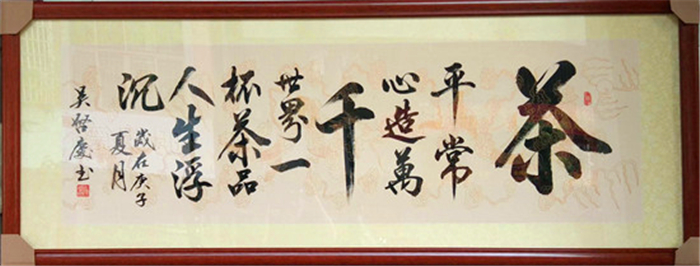 茶
平常
心造萬
千
世界一
杯茶品
人生浮
沉
歲在庚子
夏月
吴 书